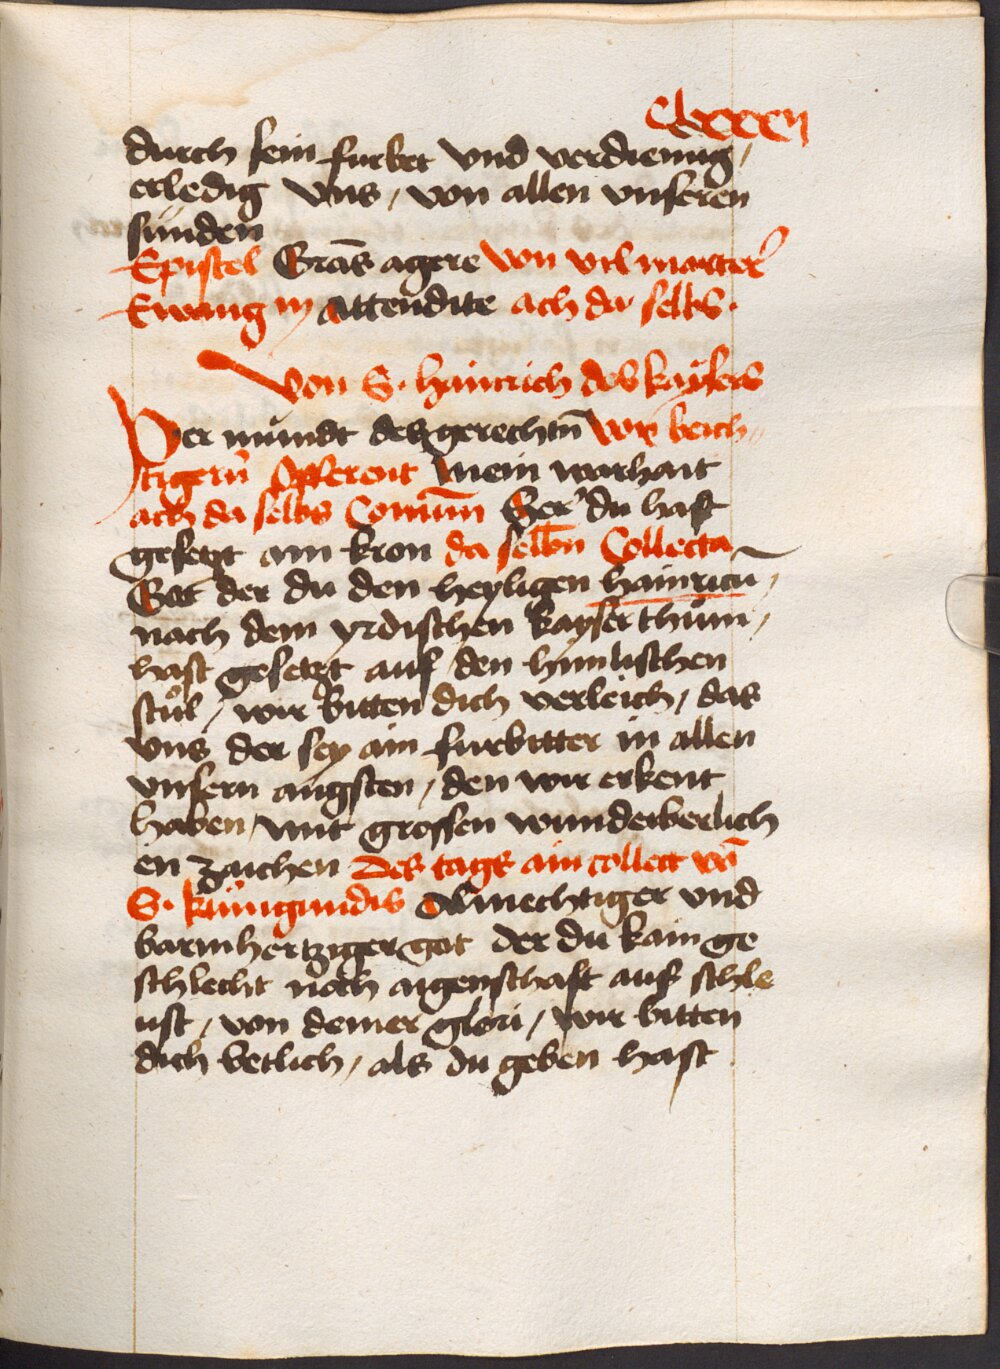 clxxxxij
durch sein furbet vnd verdienūg /
erledig vns / von allen vnseren
sünden
Epistel Grās agere von vil marter̄
Ewang ıȷ attendite ach da selbs.
Von S. Hainrich des kaysers
Der mündt des gerechtn̄ von beich
tigern̄ Offerent Mein warhait
ach da selbs Comūm Her̄ du hast
gesetzt ain kron da selbn̄ Collecta
Got der du den heyligen hainricū /
nach dem yrdischen kayserthům /
hast gesetzt auf den himlischen
stůl / wir bitten dich verleich / das
vns der sey ain furbitter in allen
vnsern angsten / den wir erkent
haben / mit grossen wunderberlich
en zaichen Des tags ain collect vō
S. künigundis Almechtiger vnd
barmhertziger got der du kain ge
schlecht noch aigenschaft auf schle
ust / von deiner glori / wir bitten
dich vetlich / als du geben hast